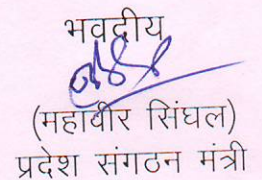 भवदीय
(महावीर सिंघल)
प्रदेश संगठन मंत्री